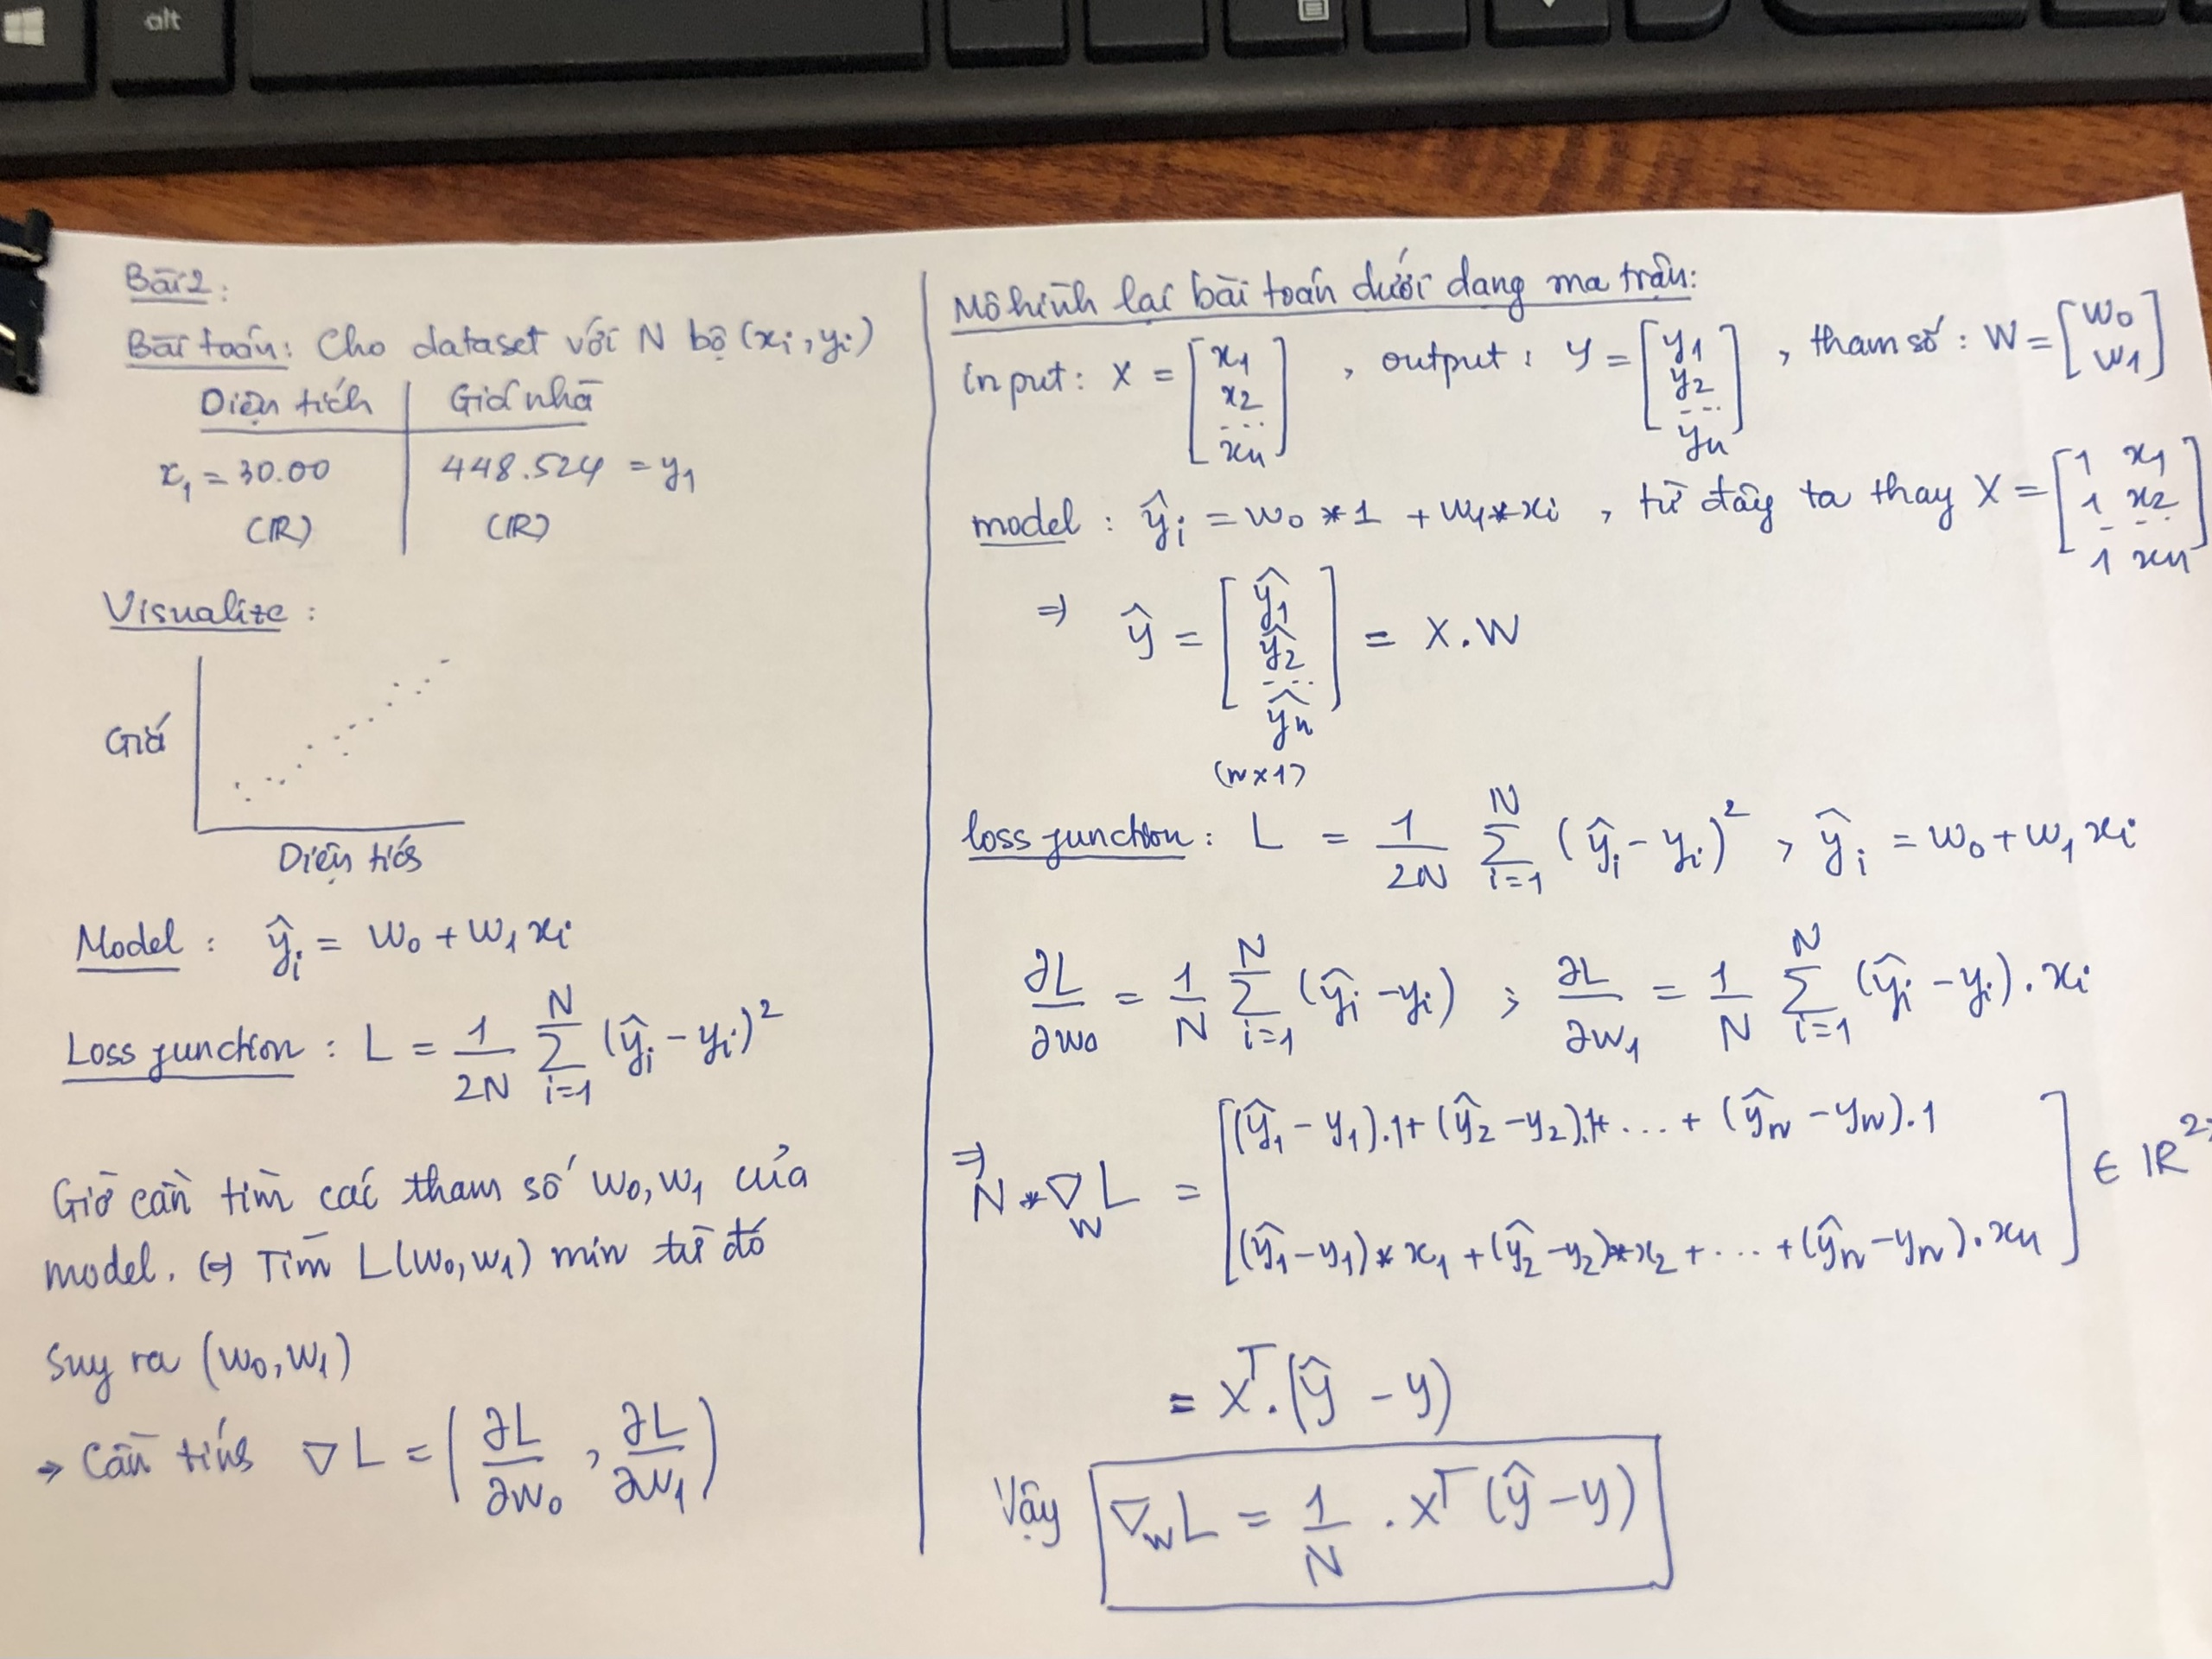 alt
Bài 2:
Bài toán: Cho dataset với N bộ (xi, yi)
Diện tích | Giá nhà
x₁ = 30.00 | 448.524 = y₁
(ℝ) | (ℝ)
Visualize:
Giá
Diện tích
Model: ŷᵢ = w₀ + w₁ xᵢ
Loss function: L = 1/2N ∑ᵢ₌₁ᴺ (ŷᵢ - yᵢ)²
Giờ cần tìm các tham số w₀, w₁ của
model. ⇔ Tìm L(w₀, w₁) min từ đó
suy ra (w₀, w₁)
→ Cần tính ∇L = (∂L/∂w₀, ∂L/∂w₁)
Mô hình lại bài toán dưới dạng ma trận:
input: X = [x₁ x₂ ... xₙ], output: y = [y₁ y₂ ... yₙ], tham số: W = [w₀ w₁]
model: ŷᵢ = w₀ * 1 + w₁ * xᵢ, từ đây ta thay X = [1 x₁ 1 x₂ ... 1 xₙ]
⇒ ŷ = [ŷ₁ ŷ₂ ... ŷₙ] = X.W
(n×1)
loss function: L = 1/2N ∑ᵢ₌₁ᴺ (ŷᵢ - yᵢ)², ŷᵢ = w₀ + w₁ xᵢ
∂L/∂w₀ = 1/N ∑ᵢ₌₁ᴺ (ŷᵢ - yᵢ) ; ∂L/∂w₁ = 1/N ∑ᵢ₌₁ᴺ (ŷᵢ - yᵢ).xᵢ
⇒ N * ∇_W L = [(ŷ₁ - y₁).1 + (ŷ₂ - y₂).1 + ... + (ŷₙ - yₙ).1
(ŷ₁ - y₁) * x₁ + (ŷ₂ - y₂) * x₂ + ... + (ŷₙ - yₙ).xₙ] ∈ ℝ²
= Xᵀ.(ŷ - y)
Vậy ∇_W L = 1/N . Xᵀ(ŷ - y)